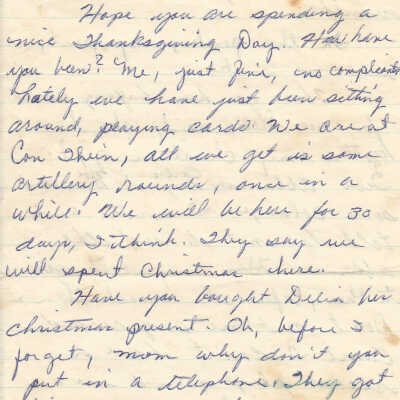 Hope you are spending a
nice Thanksgiving Day. How have
you been? Me, just fine, no complaints
Lately we have just been sitting
around, playing cards. We are at
Con Thein, all we get is some
artillery rounds, once in a
while. We will be here for 30
days, I think. They say we
will spent Christmas here.
Have you bought Delia her
christmas present. Oh, before I
forget, mom why don't you
put in a telephone. They got